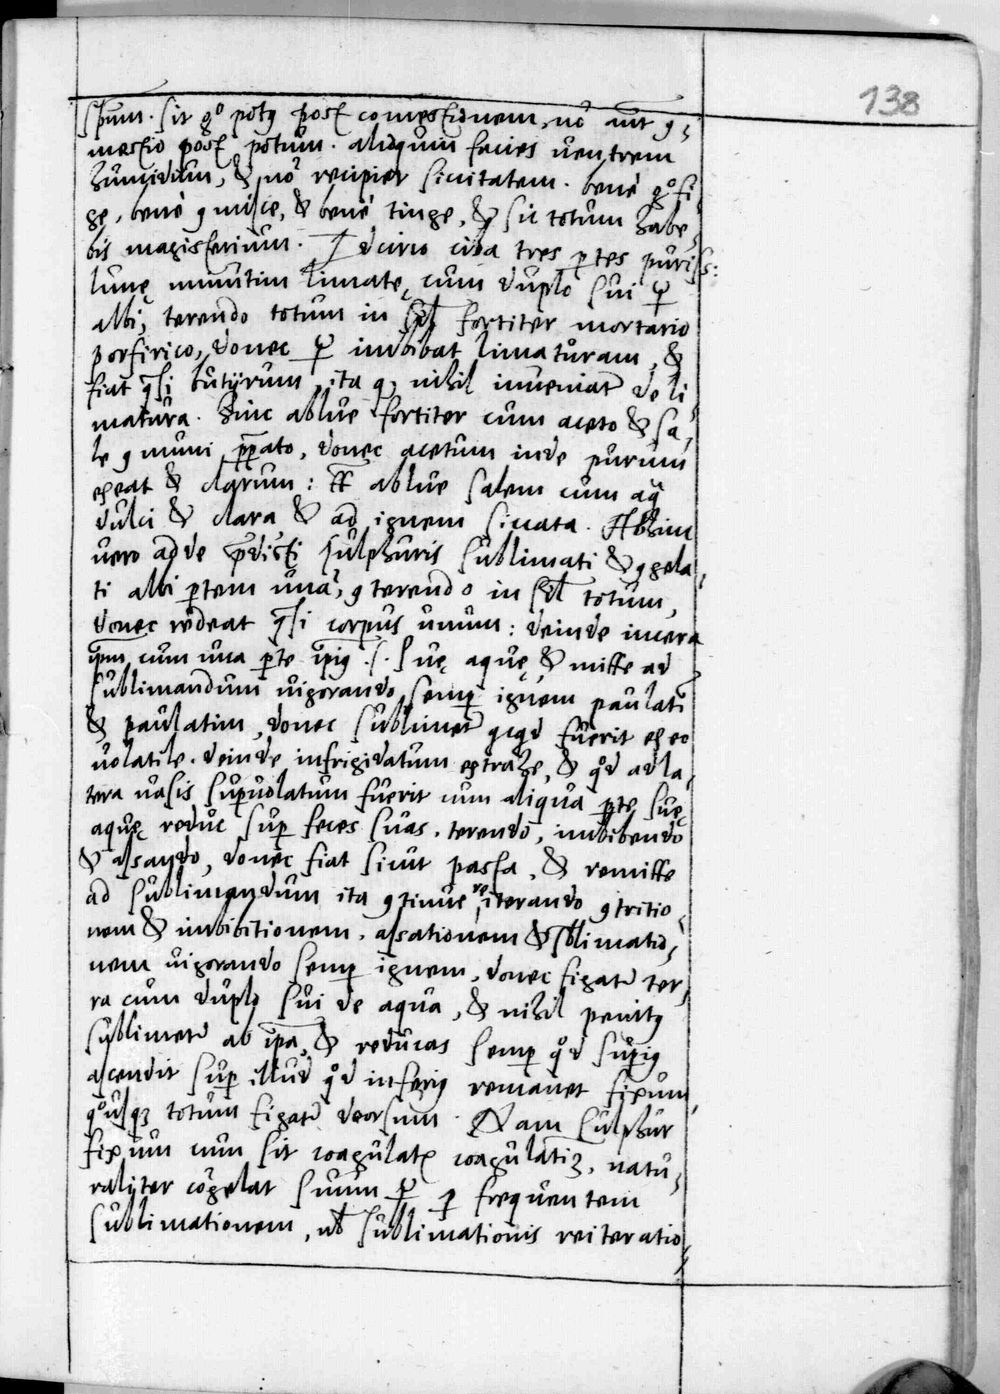 138
spūm. Sit gº potꝯ post comestionem, nō aūt ꝯ⸗
mestio post potum. aliōquin facies uentrem
humidum, & nō recipiet siccitatem. bene gº fi⸗
ge, bene ꝯmisce, & bene tinge, & sic totum habe⸗
bis magisterium. Idcirco ciba tres ꝑtes puriss:
lunę minutim limatę, cum duplo sui ☿
albi, terendo totum in sīl fortiter mortario
porfirico, donec ☿ imbibat limaturam, &
fiat qͣsi butÿrum, ita q, nihil inueniat̄ de li⸗
matura. hinc ablue fortiter cum aceto & sa⸗
le ꝯmuni p̄pato, donec acetum inde purum
exeat & clarum: & ablue salem cum aqͣ
dulci & clara & ad ignem siccata.
uero adde p̄dicti sulphuris sublimati & ꝯgela⸗
ti albi ꝑtem unā, ꝯterendo in sīl totum,
donec redeat qͣsi corpus unum: deinde incera
ip̄m cum una ꝑte ip̄iꝯ .s. suę aquę & mitte ad
sublimandum uigorando semꝑ ignem paulatī
& paulatim, donec sublimet̄ qcqd fuerit ex eo
uolatile. deinde infrigidatum extrahe, & qͦd ad la⸗
tera uasis suꝑuolatum fuerit cum aliqua ꝑte suę
aquę reduc suꝑ feces suas, terendo, imbibendo
& assando, donec fiat sicut pasta, & remitte
ad sublimandum ita ꝯtinue reiterando ꝯtritio⸗
nem & imbibitionem, assationem & sblimatio⸗
nem uigorando semꝑ ignem, donec figat̄ ter⸗
ra cum duplo sui de aqua, & nihil penitꝯ
sublimet̄ ab ip̄a, & reducas semꝑ qͦd suꝑiꝯ
ascendit suꝑ illud qͦd inferiꝯ remanet fixum,
qͦusqꝫ totum figat̄ deorsum. Nam sulphur
fixum cum sit coagulatꝫ coagulatiꝫ, natu⸗
raliter cōgelat suum ☿ ꝑ frequentem
sublimationem, ul̄ sublimationis reiteratio⸗